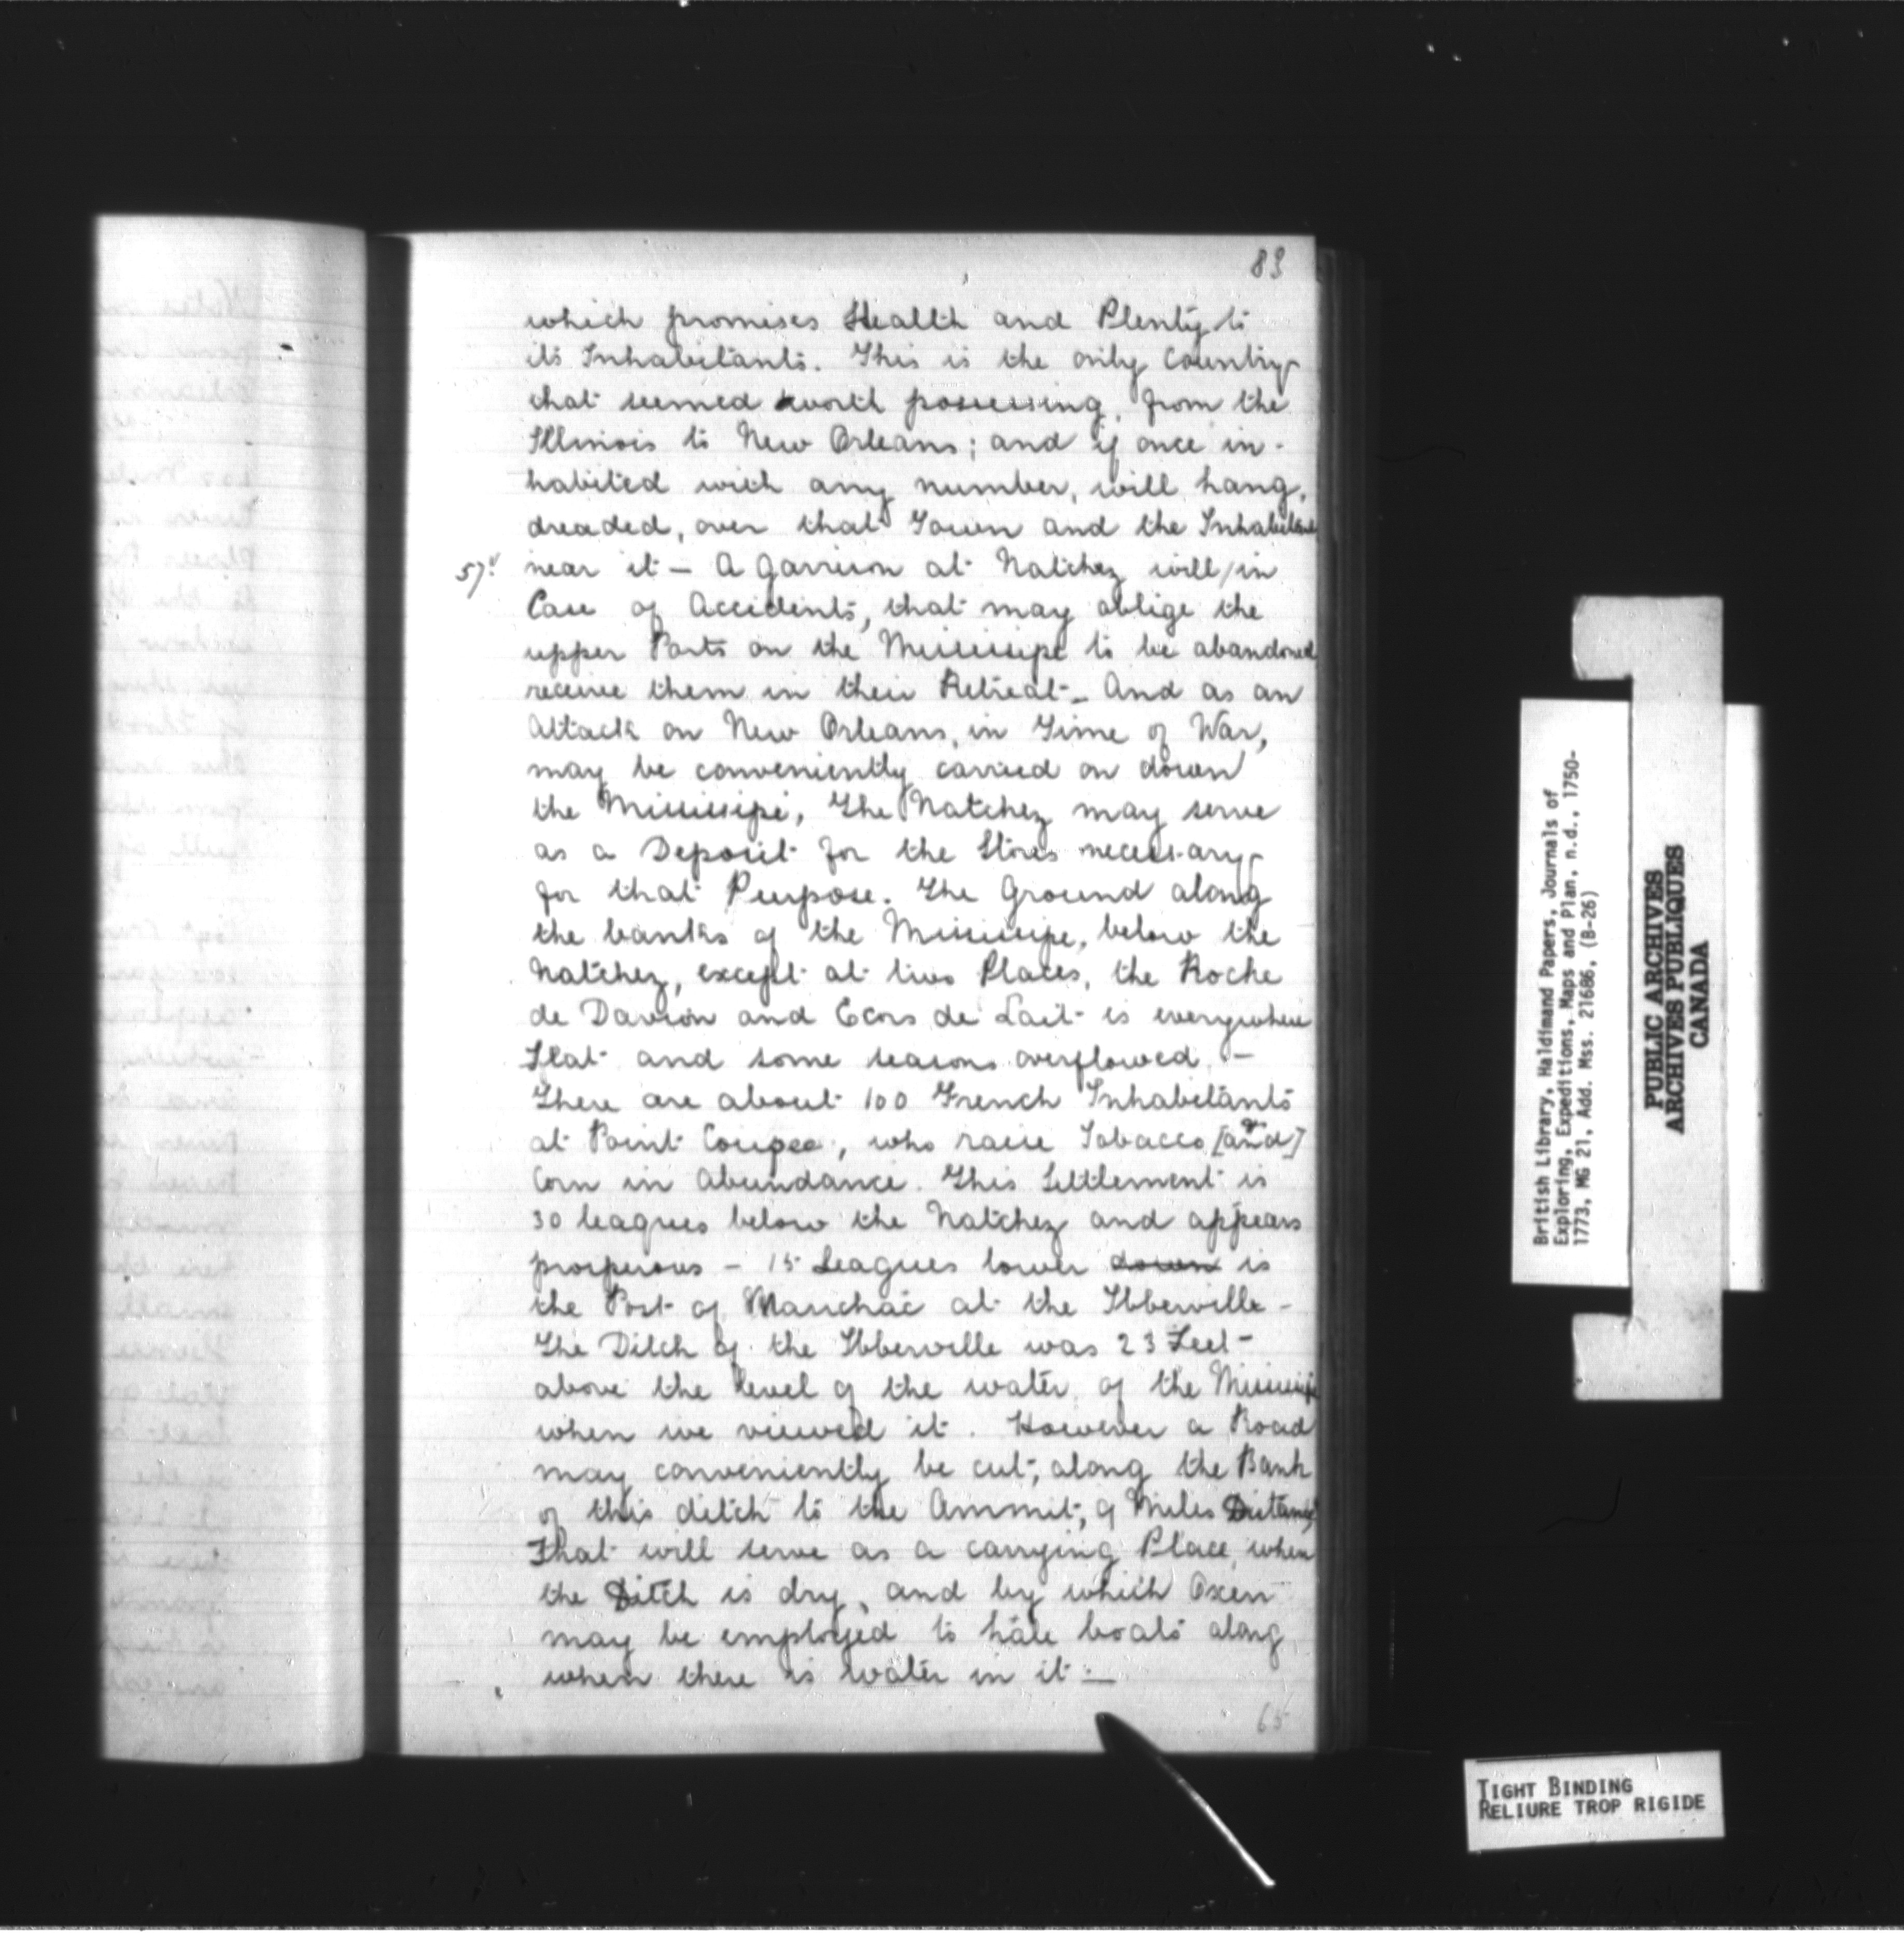 83
which promises Health and Plenty to
its Inhabitants. This is the only Country
that seemed worth possessing, from the
Illinois to New Orleans; and if once in-
habited with any number, will hang,
dreaded, over that Town and the Inhabitants
near it — A Garrison at Natchez will / in
Case of Accidents, that may oblige the
upper Parts on the Missisipi to be abandoned
receive them in their Retreat — And as an
Attack on New Orleans, in Time of War,
may be conveniently carried on down
the Missisipi, The Natchez may serve
as a Deposit for the Stores necessary
for that Purpose. The Ground along
the banks of the Missisipi, below the
Natchez, except at two Places, the Roche
de Davion and Ecors de Lait is everywhere
flat and some seasons overflowed. —
There are about 100 French Inhabitants
at Point Coupee, who raise Tobacco [and]
Corn in Abundance. This Settlement is
30 leagues below the Natchez and appears
prosperous — 15 Leagues lower down is
the Post of Manchac at the Ibberville -
The Ditch of the Ibberville was 23 Feet -
above the level of the water of the Missisipi
when we viewed it. However a Road
may conveniently be cut, along the Bank
of this ditch to the Ammit, 9 Miles Distance
That will serve as a carrying Place, when
the Ditch is dry, and by which Oxen
may be employed to hale boats along
when there is water in it —
65
British Library, Haldimand Papers, Journals of
Exploring, Expeditions, Maps and Plan, n.d., 1750-
1773, MG 21, Add. Mss. 21686, (B-26)
PUBLIC ARCHIVES
ARCHIVES PUBLIQUES
CANADA
TIGHT BINDING
RELIURE TROP RIGIDE